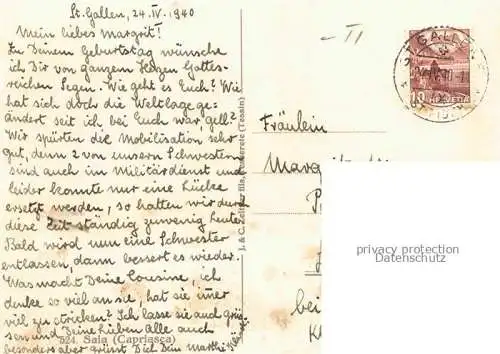 St. Gallen, 24. IV. 1940
Mein liebes Margrit!
Zu Deinem Geburtstag wünsche
ich Dir von ganzem Herzen Gottes-
reichen Segen. Wie geht es Euch? Wie
hat sich doch die Weltlage ge-
ändert seit ich bei Euch war, gell?
Wir spürten die Mobilisation sehr
gut, denn 2 von unsern Schwestern
sind auch im Militärdienst und
leider konnte nur eine Lücke
ersetzt werden, so hatten wir durch
diese Zeit ständig zuwenig Leute.
Bald wird nun eine Schwester
entlassen, dann bessert es wieder.
Was macht Deine Cousine, ich
denke es viel an sie, hat sie imer
viel zu stricken? Ich lasse sie auch grüs-
sen und Deine Lieben Alle auch
524. Sala (Capriasca)
besonders aber grüsst Dich Dein
J. & C.
(Tessin)
ST. GALLEN
10
HELVETIA
Fräulein
Marg
bei
privacy protection
Datenschutz